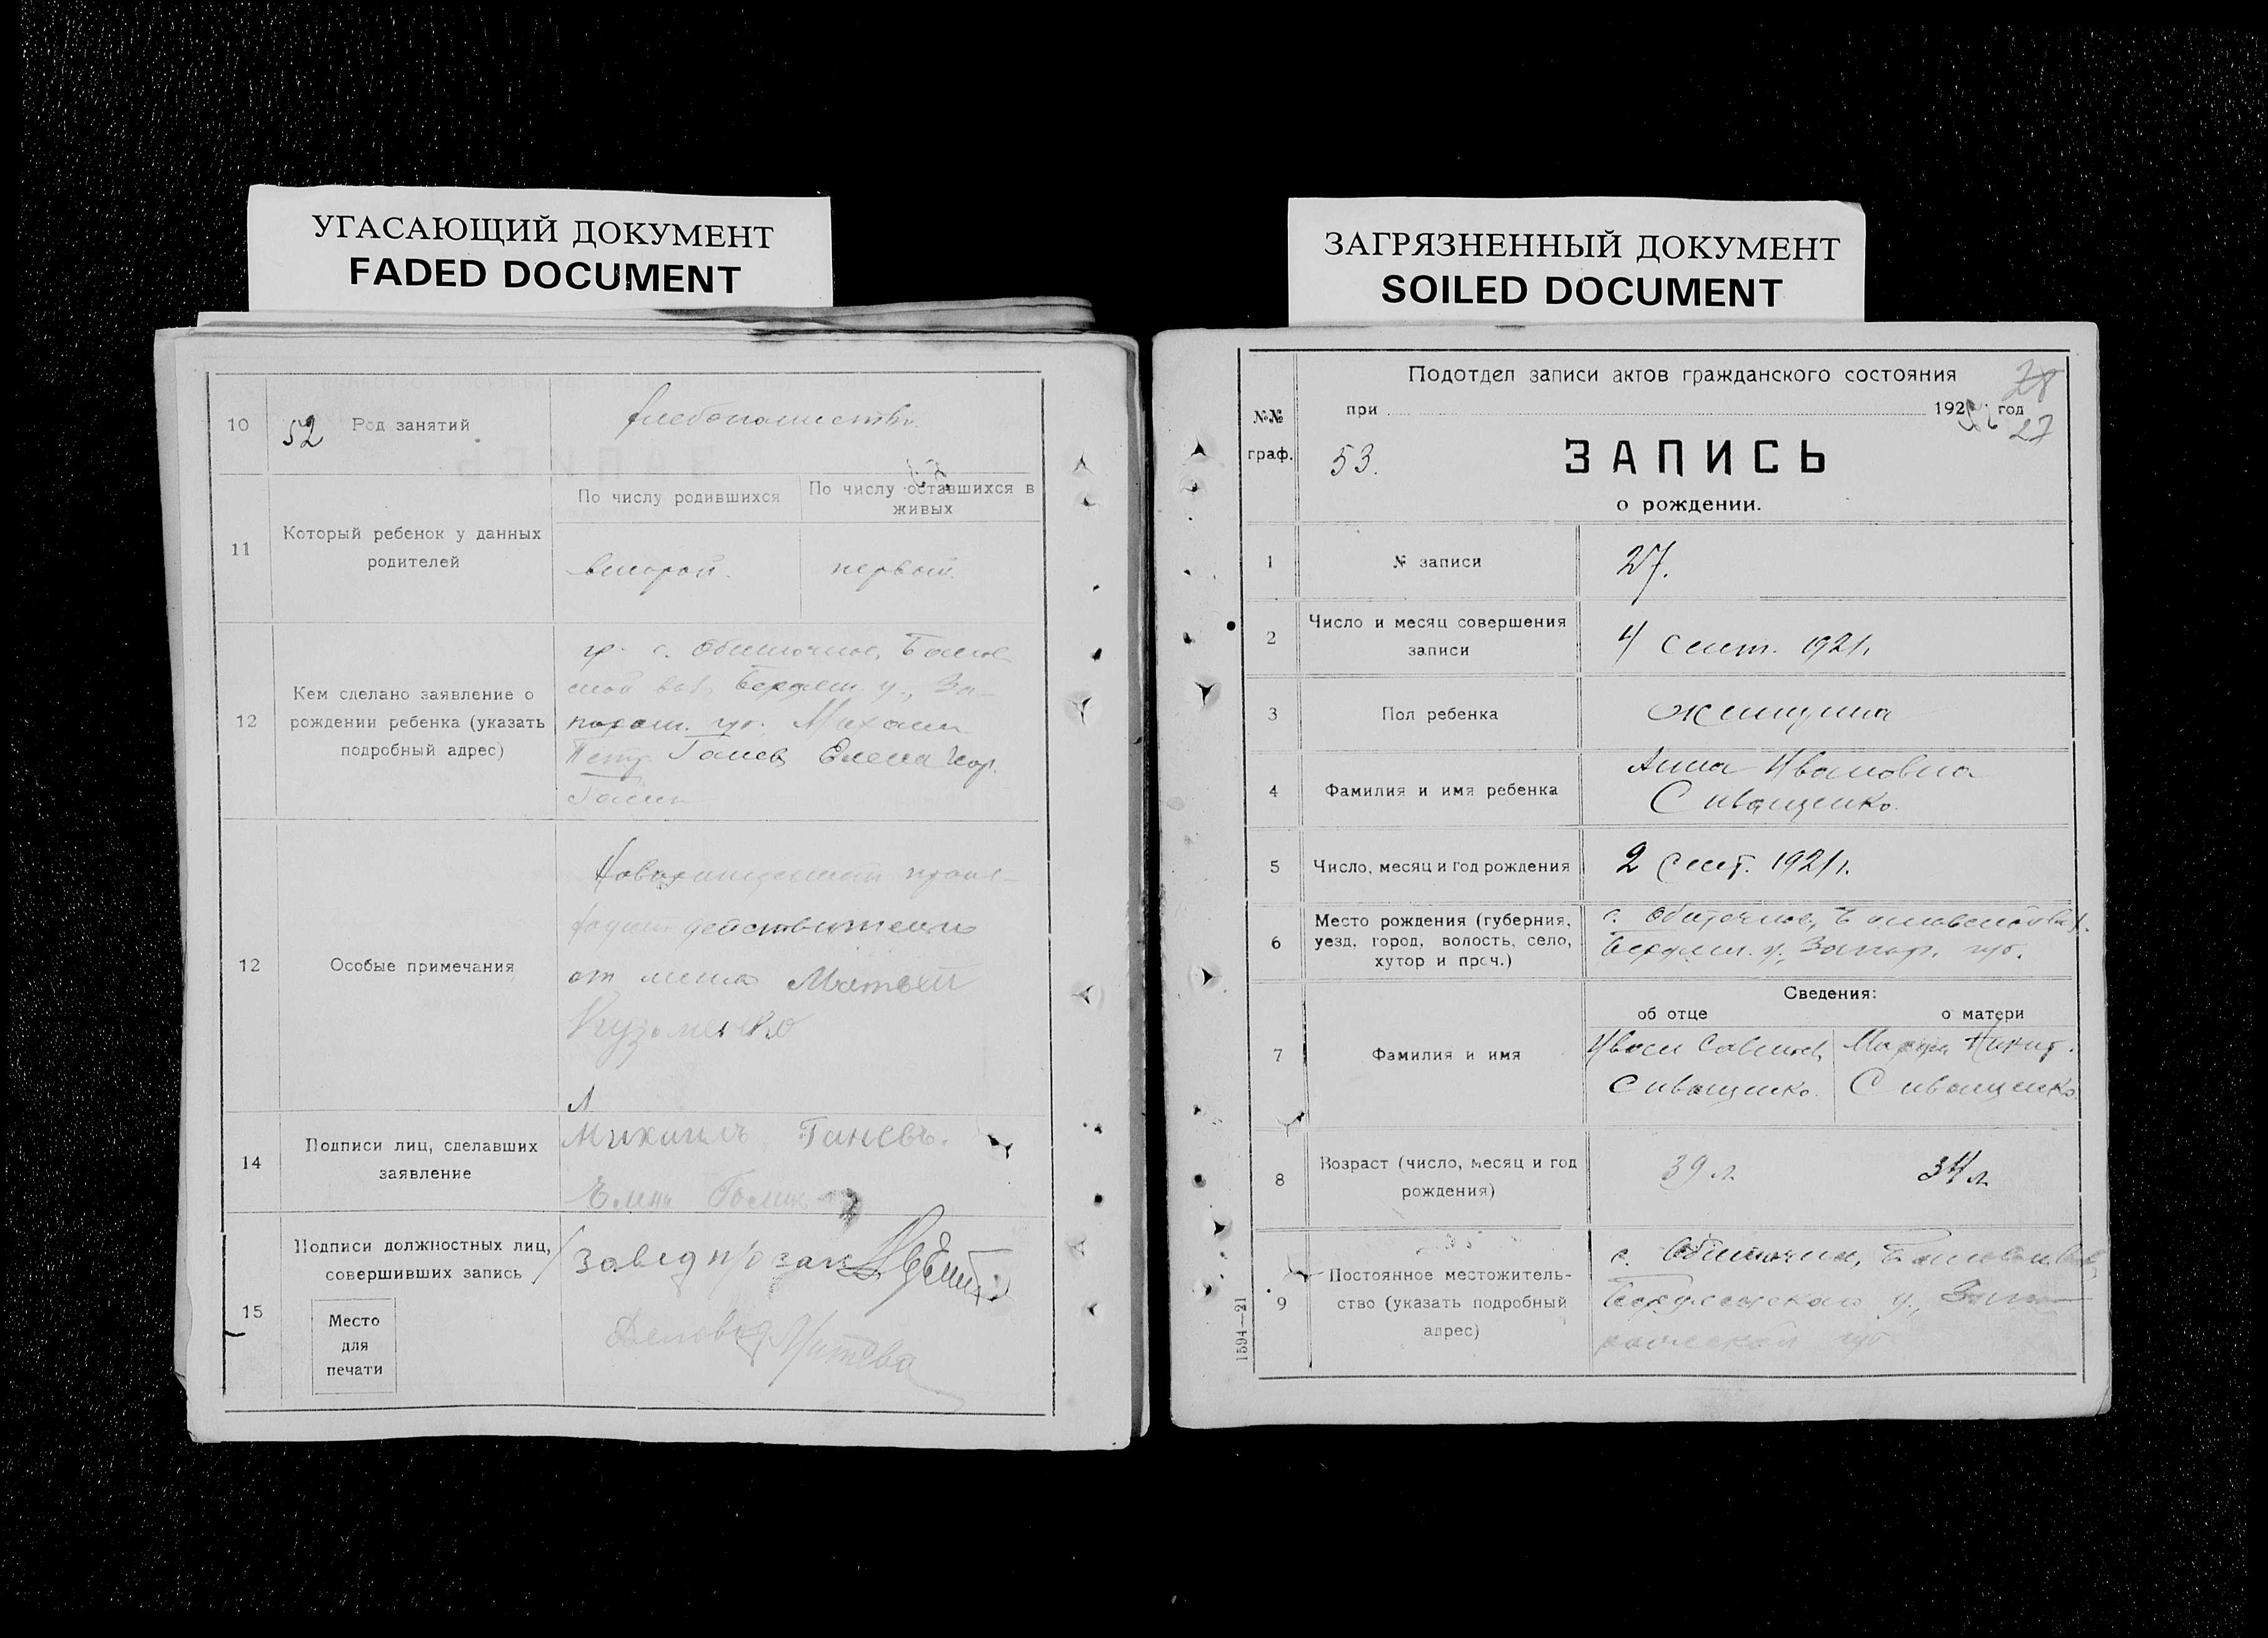 УГАСАЮЩИЙ ДОКУМЕНТ
FADED DOCUMENT
10
52
Род занятий
хлебопашество.
11
Который ребенок у данных
родителей
По числу родившихся
По числу оставшихся в
живых
второй.
первый.
12
Кем сделано заявление о
рождении ребенка (указать
подробный адрес)
гр. с. Обиточное,
вол. Бердян. у., За-
порож. губ. Михаил
Петр. Ганев, Елена
12
Особые примечания
действительно
от меня Матвей
Кузьменко
14
Подписи лиц, сделавших
заявление
Михаилъ Ганевъ.
Елена
15
Подписи должностных лиц,
совершивших запись
Место
для
печати
завед п/о зап
Деловод
ЗАГРЯЗНЕННЫЙ ДОКУМЕНТ
SOILED DOCUMENT
Подотдел записи актов гражданского состояния
28
№№
граф.
при
192 год
27
53.
ЗАПИСЬ
о рождении.
1
№ записи
27.
2
Число и месяц совершения
записи
4 сент. 1921 г.
3
Пол ребенка
женщина
4
Фамилия и имя ребенка
Анна Ивановна
Сиващенко.
5
Число, месяц и год рождения
2 сент. 1921 г.
6
Место рождения (губерния,
уезд, город, волость, село,
хутор и проч.)
с. Обиточное,
Бердян. у., Запор. губ.
Сведения:
об отце
о матери
7
Фамилия и имя
Иван Савинов,
Сиващенко.
Мария Никит.
Сиващенко.
8
Возраст (число, месяц и год
рождения)
39 л.
34 л.
9
Постоянное местожитель-
ство (указать подробный
адрес)
с. Обиточное,
Бердянского у., Запо-
рожской губ
1594—21